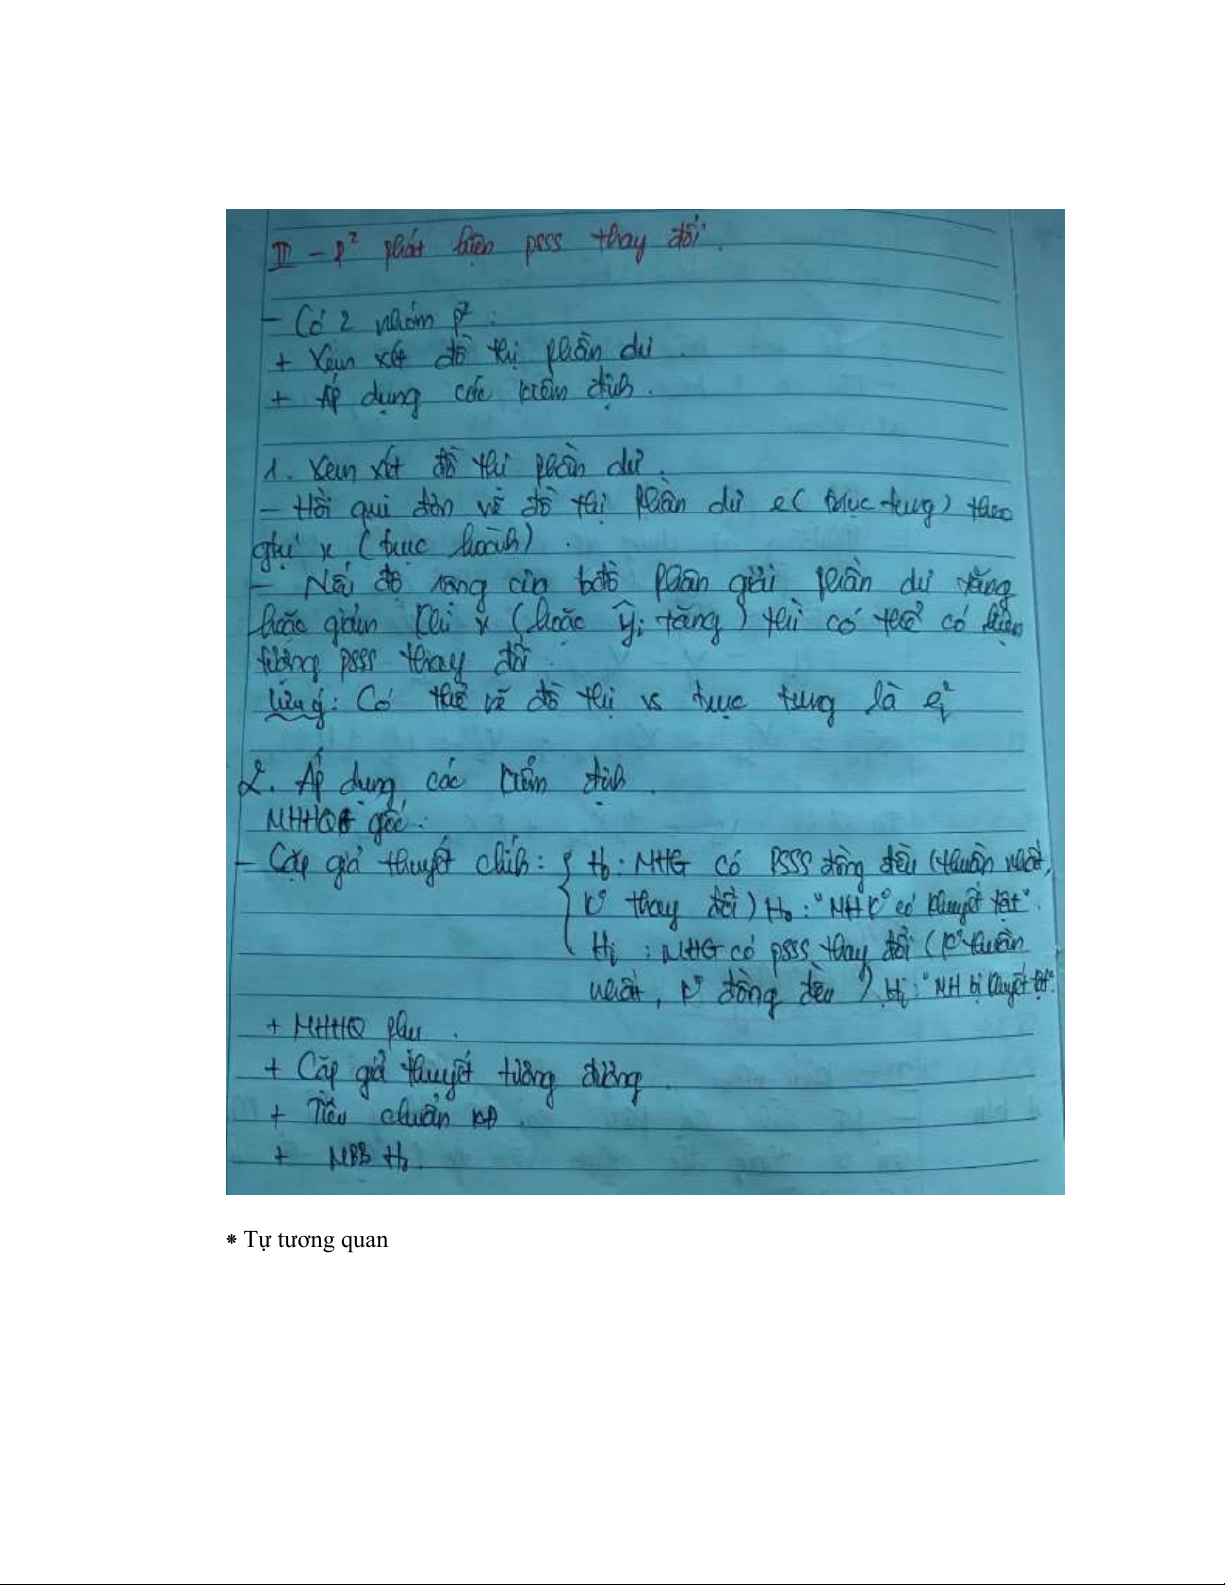 III - P² phát hiện psss thay đổi.
- Có 2 nhóm P² :
+ Xem xét đồ thị phần dư.
+ Áp dụng các kiểm định.
1. Xem xét đồ thị phần dư.
- Hồi qui đơn vẽ đồ thị phần dư e ( trục tung ) theo
gtrị x ( trục hoành ).
- Nếu độ rộng của bđồ phân giải phần dư tăng
hoặc giảm khi x ( hoặc ŷᵢ tăng ) thì có thể có hiện
tượng psss thay đổi.
Lưu ý : Có thể vẽ đồ thị vs trục tung là eᵢ²
2. Áp dụng các kiểm định.
MHHQ gốc :
- Cặp giả thuyết chính : { H₀ : MHG có PSSS đồng đều (thuần nhất,
K° thay đổi ) H₀ : "MH K° có khuyết tật".
H₁ : MHG có psss thay đổi ( K° thuần
nhất, K° đồng đều ) H₁ : "MH bị khuyết tật".
+ MHHQ phụ.
+ Cặp giả thuyết tương đương.
+ Tiêu chuẩn KĐ.
+ MBB H₀.
* Tự tương quan